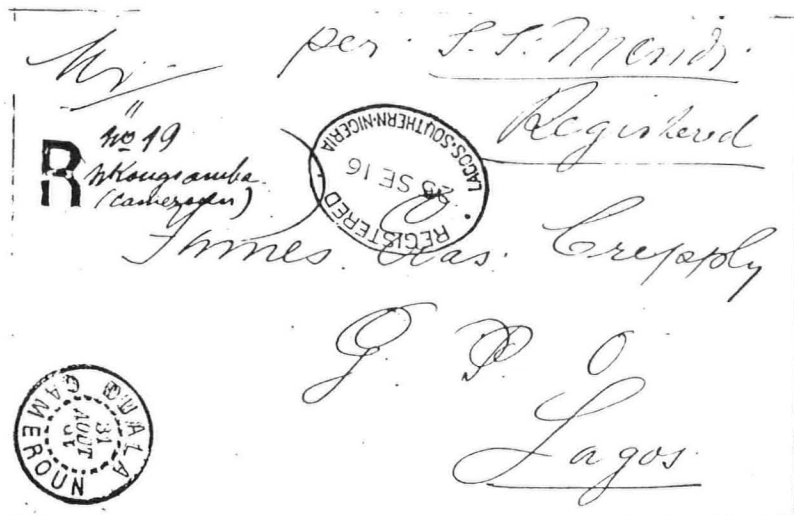 per S.S. Mendi
Mr
Registered
R
No 19
Nkongsamba
(Cameroun)
REGISTERED
LAGOS·SOUTHERN·NIGERIA
SE 16
James Chas. Crepply
G. P. O
Lagos
DUALA
31
AOUT
CAMEROUN